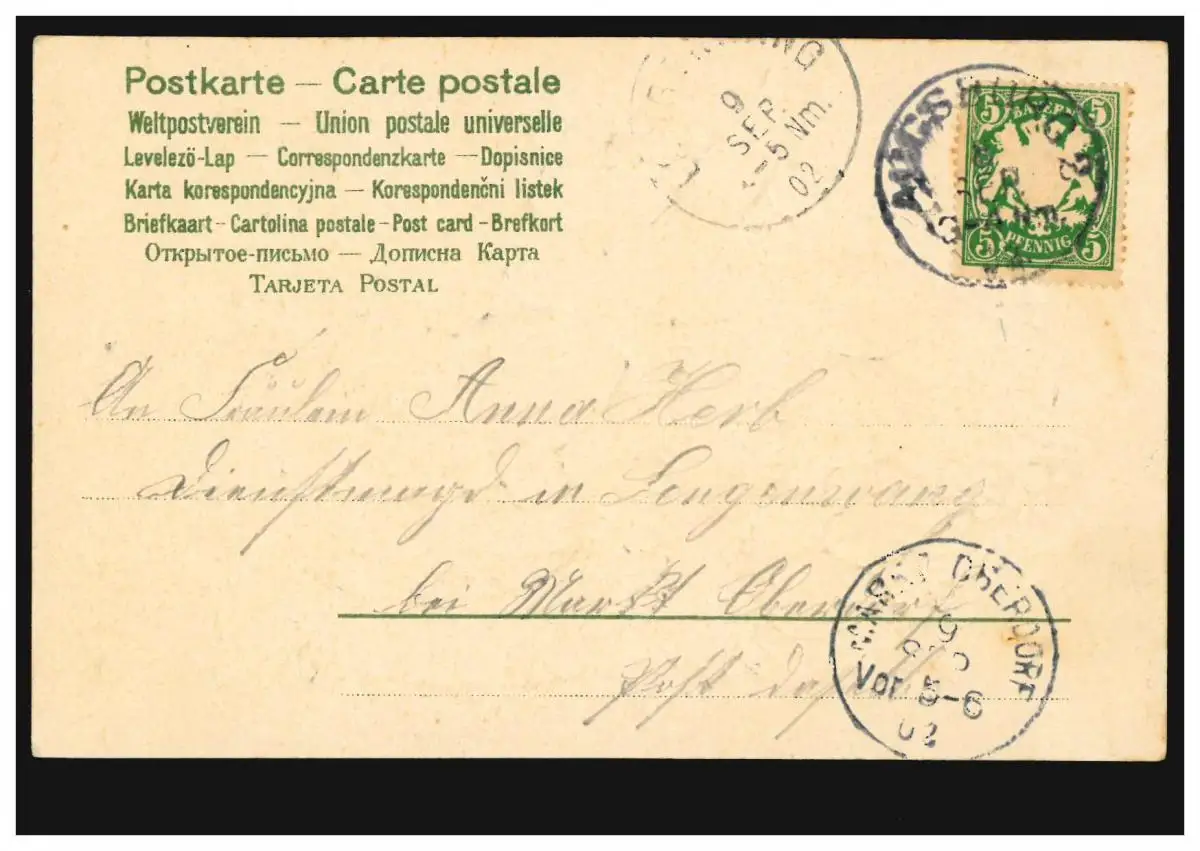 Postkarte – Carte postale
Weltpostverein – Union postale universelle
Levelező-Lap – Correspondenzkarte – Dopisnice
Karta korespondencyjna – Korespondenční listek
Briefkaart - Cartolina postale - Post card - Brefkort
Открытое-письмо — Дописна Карта
TARJETA POSTAL
9
SEP.
5 Nm.
02
AUGSBURG 2
5 5
BAYERN
5 PFENNIG 5
An Fräulein Anna Herb
Dienstmagd in Lengenwang
bei Markt Oberdorf
Post daselbst
MARKT OBERDORF
9
SEP
Vor 5-6
02